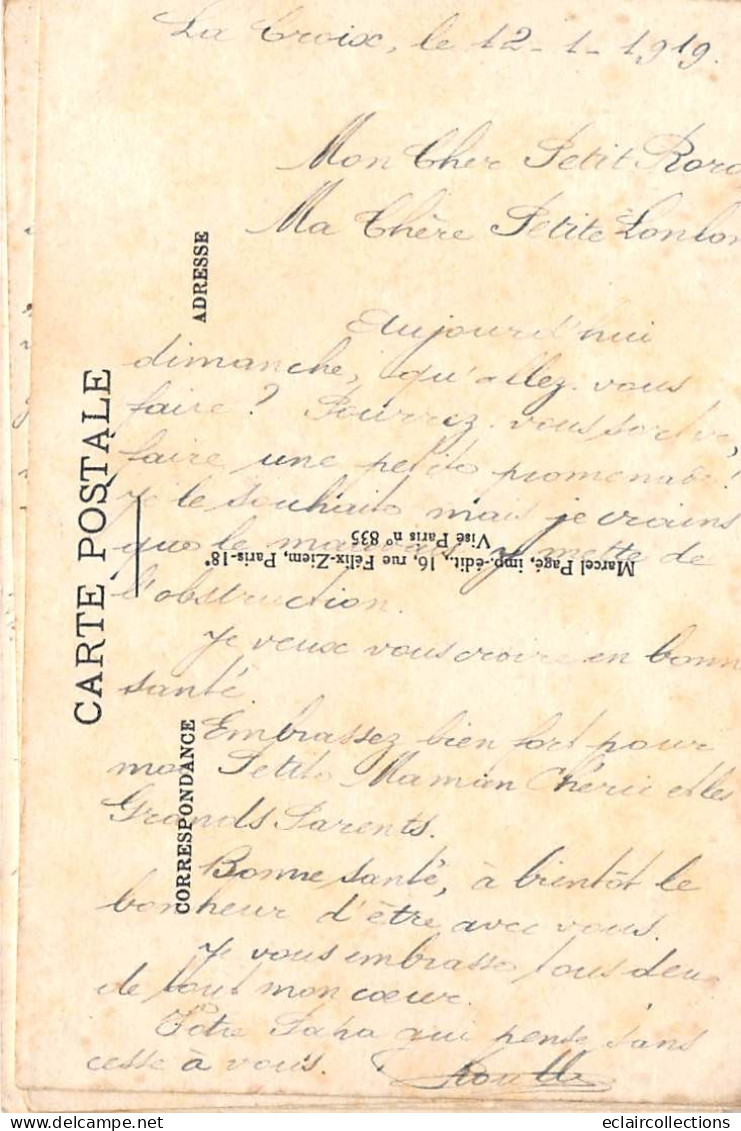 La Croix, le 12-1-1919.
Mon Cher Petit
Ma Chère Petite
Aujourd'hui
dimanche, qu'allez-vous
faire? Pourrez-vous sortir,
faire une petite promenade?
Je le souhaite mais je crains
que le mauvais y mette de
l'obstruction.
Je veux vous croire en bonne
santé.
Embrassez bien fort pour
moi Petite Maman Chérie et les
Grands Parents.
Bonne santé, à bientôt le
bonheur d'être avec vous.
Je vous embrasse tous deux
de tout mon cœur.
Votre Papa qui pense sans
cesse à vous.
CARTE POSTALE
CORRESPONDANCE
ADRESSE
Marcel Pagé, imp.-édit., 16, rue Félix-Ziem, Paris-18e
Visé Paris n° 835
eclaircollections
Delcampe.net